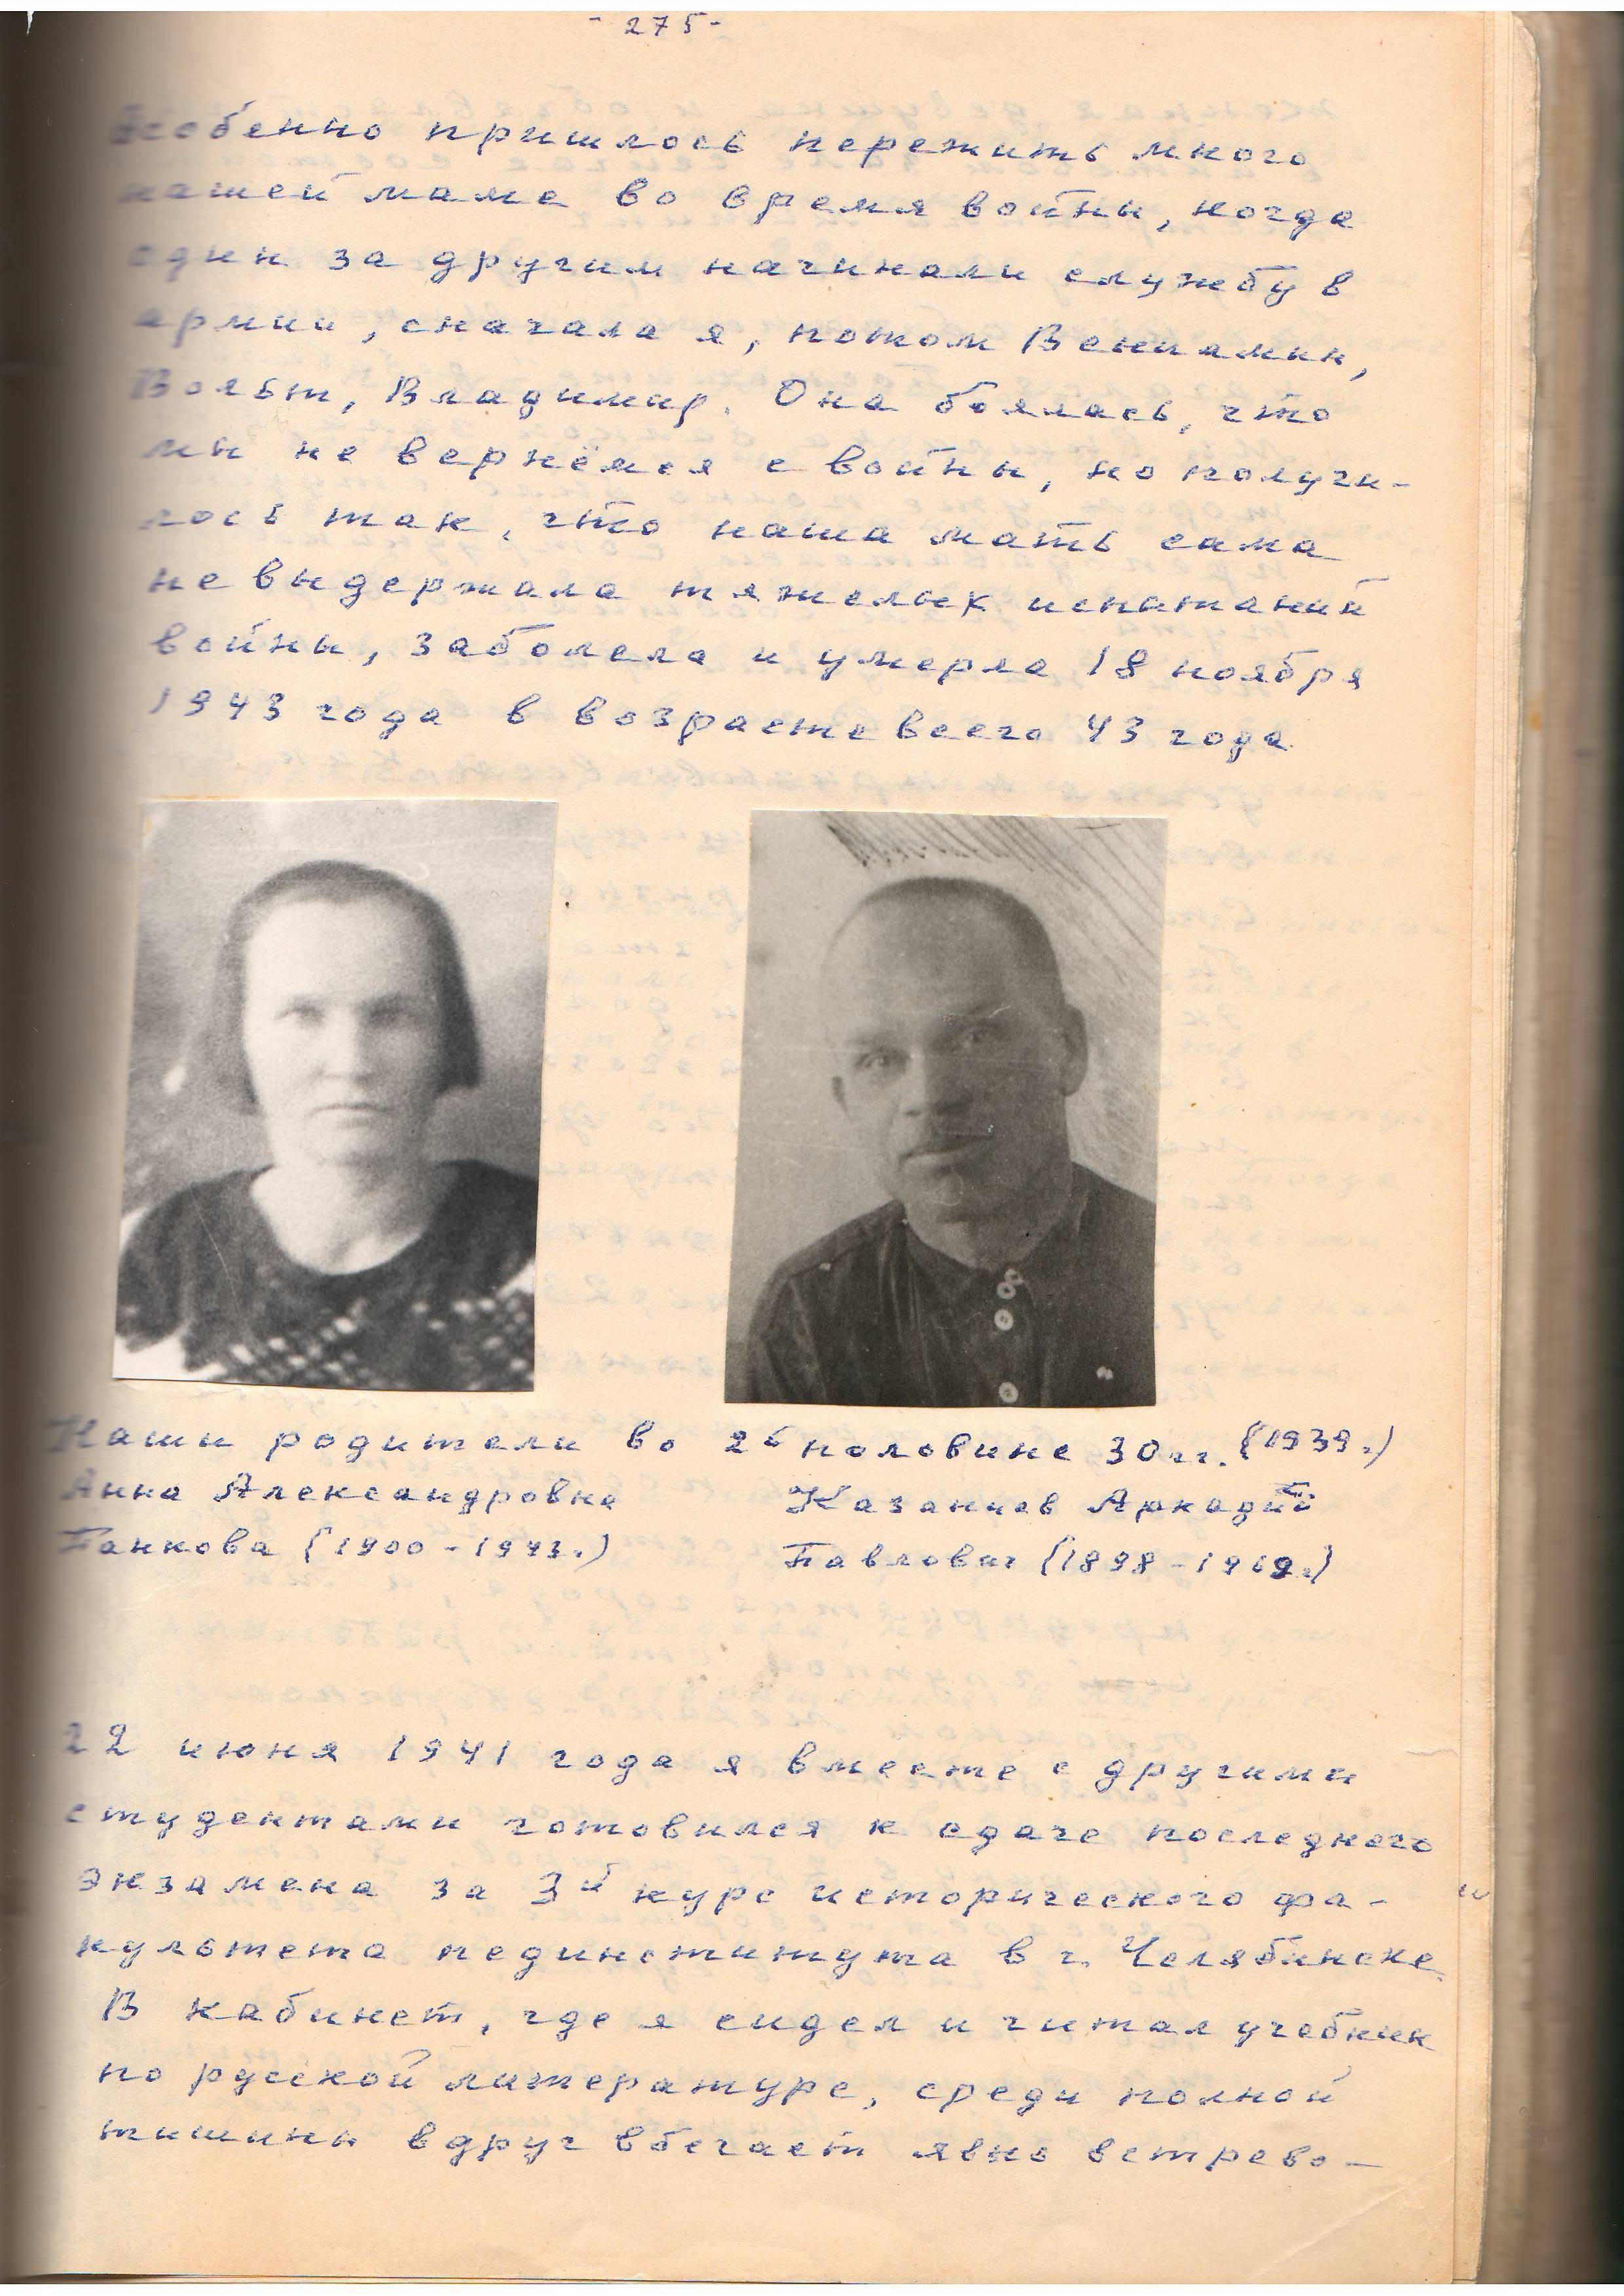 - 275 -
Особенно пришлось пережить много
нашей маме во время войны, когда
один за другим начинали службу в
армии, сначала я, потом Вениамин,
Вольт, Владимир. Она боялась, что
мы не вернёмся с войны, но получи-
лось так, что наша мать сама
не выдержала тяжелых испытаний
войны, заболела и умерла 18 ноября
1943 года в возрасте всего 43 года
Наши родители во 2й половине 30 гг. (1939г.)
Анна Александровна Казанцев Аркадий
Панкова (1900 - 1943г.) Павлович (1898 - 1969г.)
22 июня 1941 года я вместе с другими
студентами готовился к сдаче последнего
экзамена за 3й курс исторического фа-
культета пединститута в г. Челябинске.
В кабинет, где я сидел и читал учебник
по русской литературе, среди полной
тишины вдруг вбегает явно встрево-